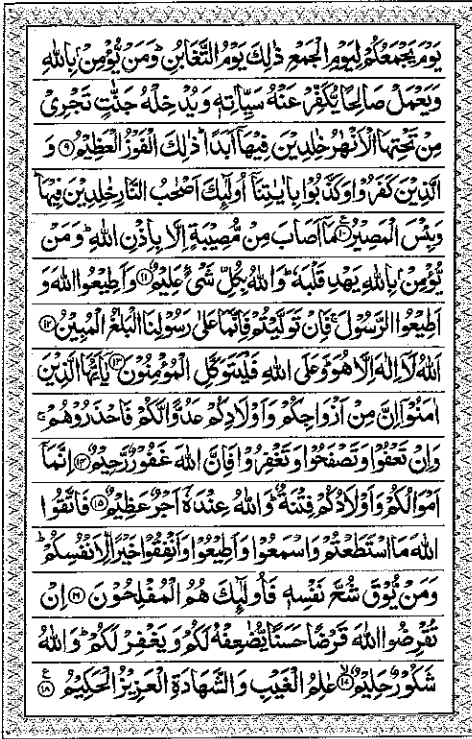 يَوۡمَ يَجۡمَعُكُمۡ لِيَوۡمِ الۡجَمۡعِ ذٰلِكَ يَوۡمُ التَّغَابُنِ ؕ وَمَنۡ يُّؤۡمِنۡۢ بِاللّٰهِ
وَيَعۡمَلۡ صَالِحًا يُّكَفِّرۡ عَنۡهُ سَيِّاٰتِهٖ وَيُدۡخِلۡهُ جَنّٰتٍ تَجۡرِىۡ
مِنۡ تَحۡتِهَا الۡاَنۡهٰرُ خٰلِدِيۡنَ فِيۡهَاۤ اَبَدًا ؕ ذٰلِكَ الۡفَوۡزُ الۡعَظِيۡمُ ﴿۹﴾ وَ
الَّذِيۡنَ كَفَرُوۡا وَكَذَّبُوۡا بِاٰيٰتِنَاۤ اُولٰٓئِكَ اَصۡحٰبُ النَّارِ خٰلِدِيۡنَ فِيۡهَا ؕ
وَبِئۡسَ الۡمَصِيۡرُ ﴿۱۰﴾ مَاۤ اَصَابَ مِنۡ مُّصِيۡبَةٍ اِلَّا بِاِذۡنِ اللّٰهِ ؕ وَمَنۡ
يُّؤۡمِنۡۢ بِاللّٰهِ يَهۡدِ قَلۡبَهٗ ؕ وَاللّٰهُ بِكُلِّ شَىۡءٍ عَلِيۡمٌ ﴿۱۱﴾ وَاَطِيۡعُوا اللّٰهَ وَ
اَطِيۡعُوا الرَّسُوۡلَ ۚ فَاِنۡ تَوَلَّيۡتُمۡ فَاِنَّمَا عَلٰى رَسُوۡلِنَا الۡبَلٰغُ الۡمُبِيۡنُ ﴿۱۲﴾
اَللّٰهُ لَاۤ اِلٰهَ اِلَّا هُوَ ؕ وَعَلَى اللّٰهِ فَلۡيَتَوَكَّلِ الۡمُؤۡمِنُوۡنَ ﴿۱۳﴾ يٰۤاَيُّهَا الَّذِيۡنَ
اٰمَنُوۡۤا اِنَّ مِنۡ اَزۡوَاجِكُمۡ وَاَوۡلَادِكُمۡ عَدُوًّا لَّكُمۡ فَاحۡذَرُوۡهُمۡ ۚ
وَاِنۡ تَعۡفُوۡا وَتَصۡفَحُوۡا وَتَغۡفِرُوۡا فَاِنَّ اللّٰهَ غَفُوۡرٌ رَّحِيۡمٌ ﴿۱۴﴾ اِنَّمَاۤ
اَمۡوَالُكُمۡ وَاَوۡلَادُكُمۡ فِتۡنَةٌ ؕ وَاللّٰهُ عِنۡدَهٗۤ اَجۡرٌ عَظِيۡمٌ ﴿۱۵﴾ فَاتَّقُوا
اللّٰهَ مَا اسۡتَطَعۡتُمۡ وَاسۡمَعُوۡا وَاَطِيۡعُوۡا وَاَنۡفِقُوۡا خَيۡرًا لِّاَنۡفُسِكُمۡ ؕ
وَمَنۡ يُّوۡقَ شُحَّ نَفۡسِهٖ فَاُولٰٓئِكَ هُمُ الۡمُفۡلِحُوۡنَ ﴿۱۶﴾ اِنۡ
تُقۡرِضُوا اللّٰهَ قَرۡضًا حَسَنًا يُّضٰعِفۡهُ لَكُمۡ وَيَغۡفِرۡ لَكُمۡ ؕ وَاللّٰهُ
شَكُوۡرٌ حَلِيۡمٌ ﴿۱۷﴾ عٰلِمُ الۡغَيۡبِ وَالشَّهَادَةِ الۡعَزِيۡزُ الۡحَكِيۡمُ ﴿۱۸﴾